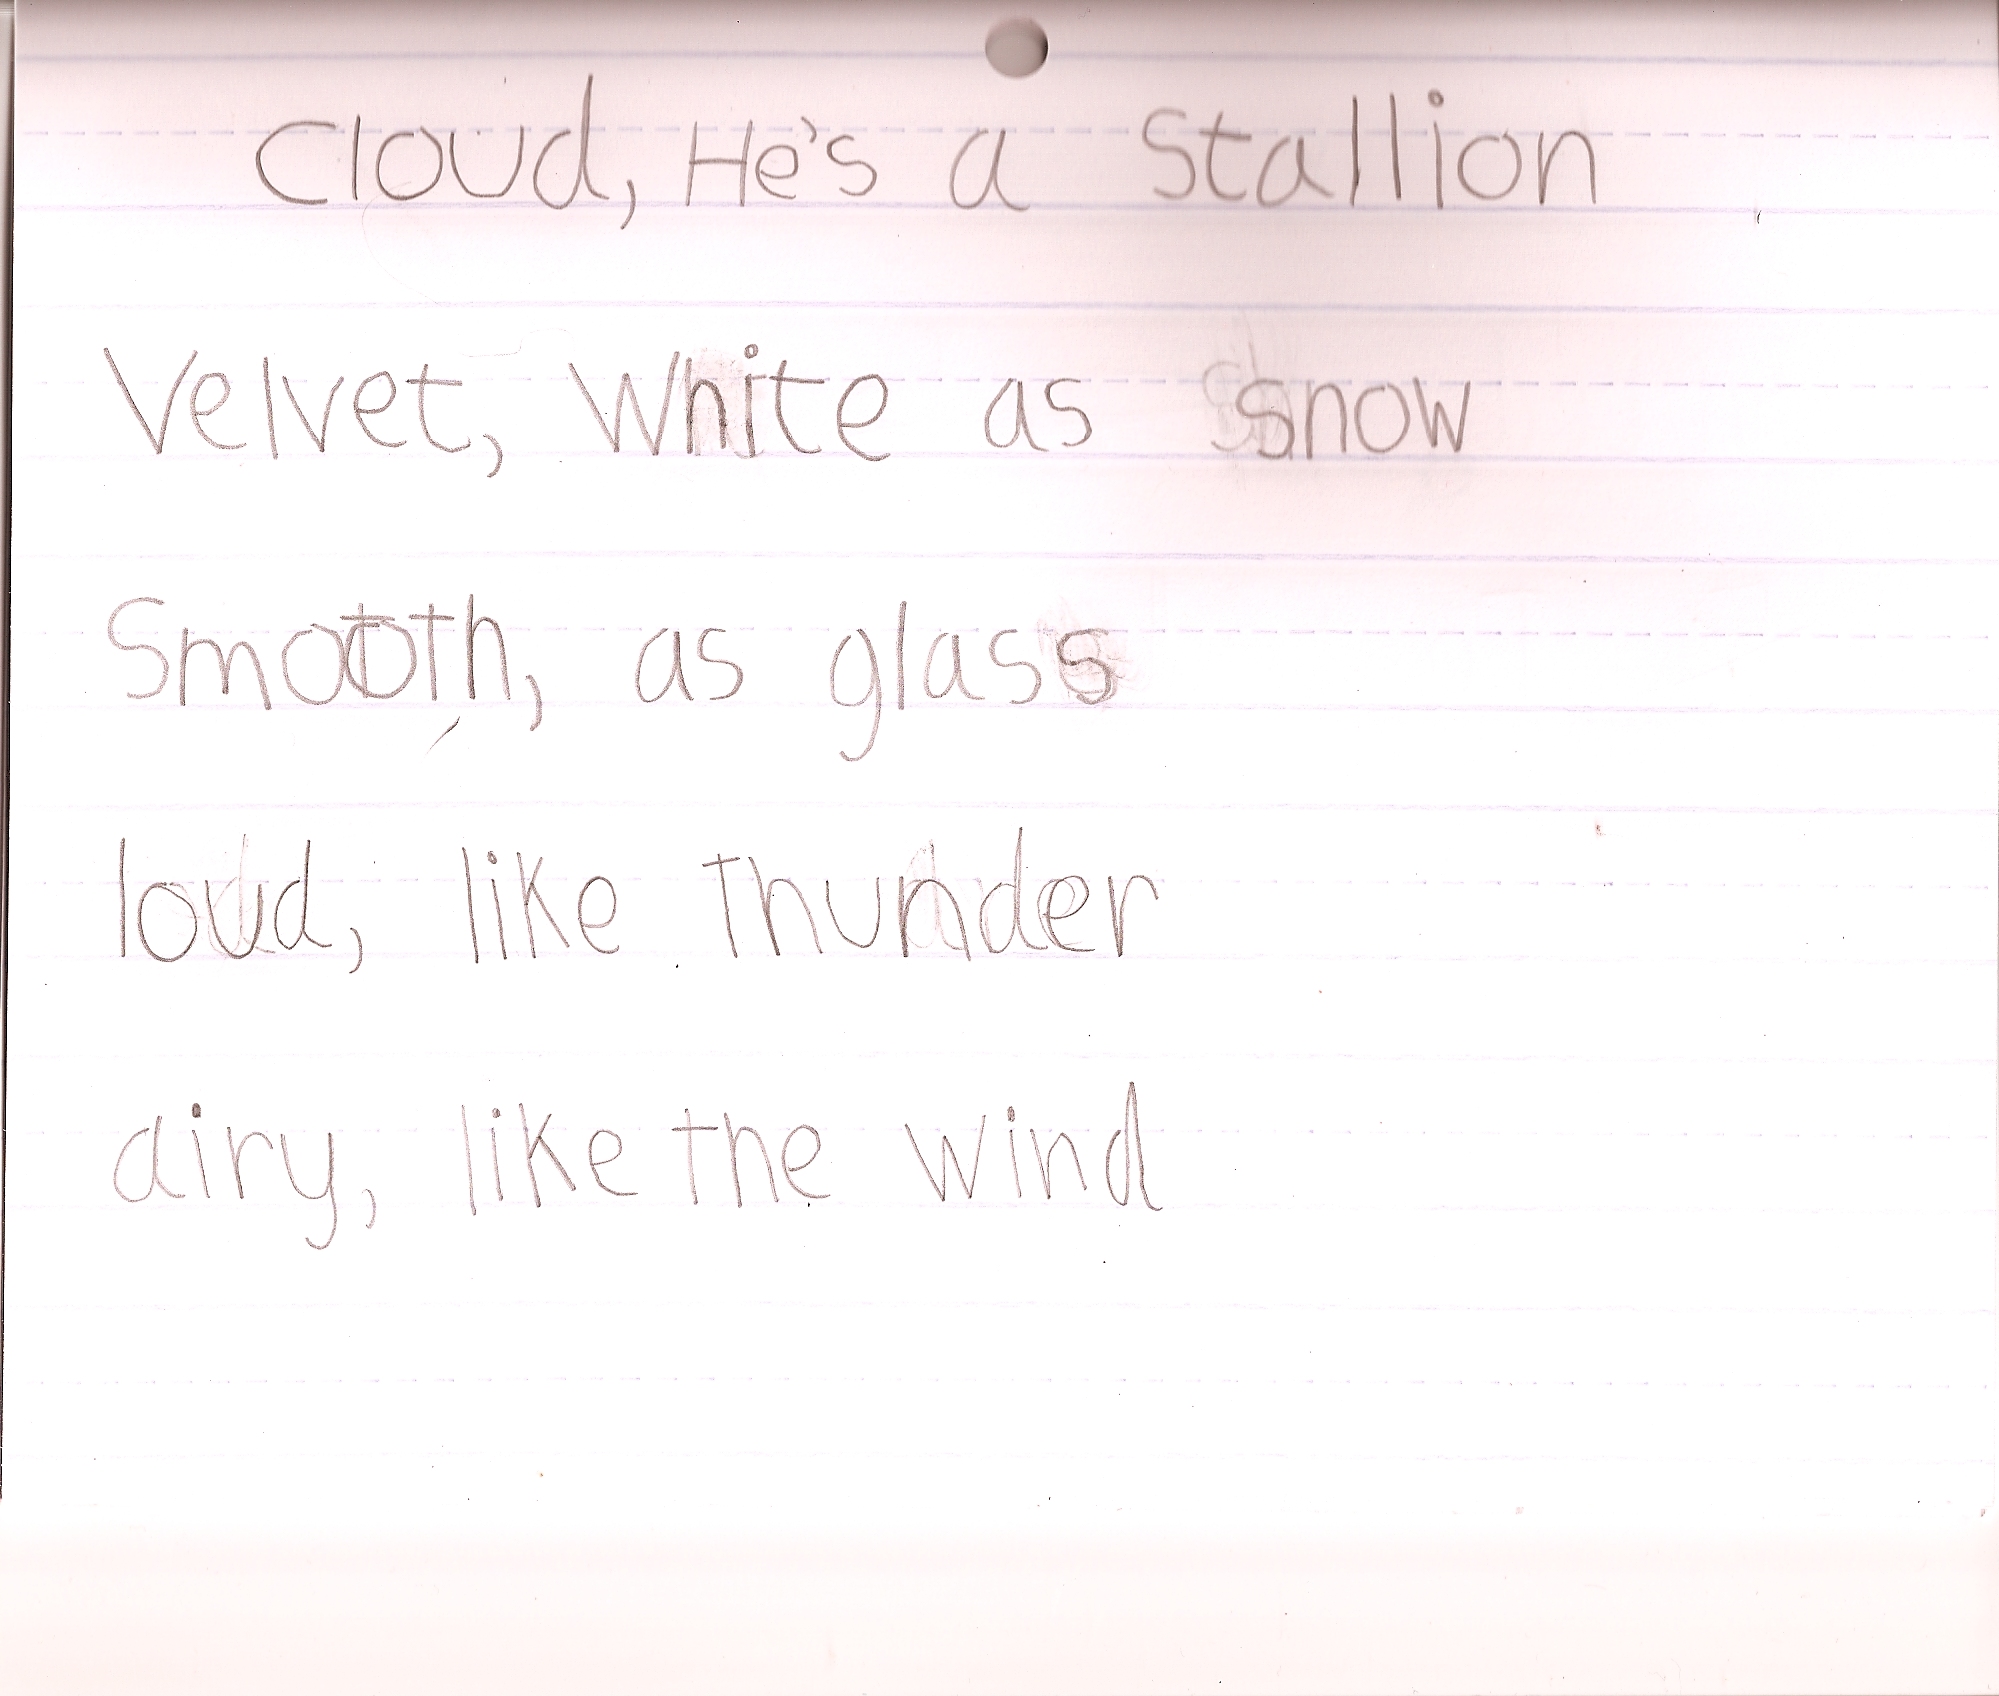 Cloud, He's a Stallion
Velvet, White as snow
Smooth, as glass
loud, like Thunder
airy, like the Wind